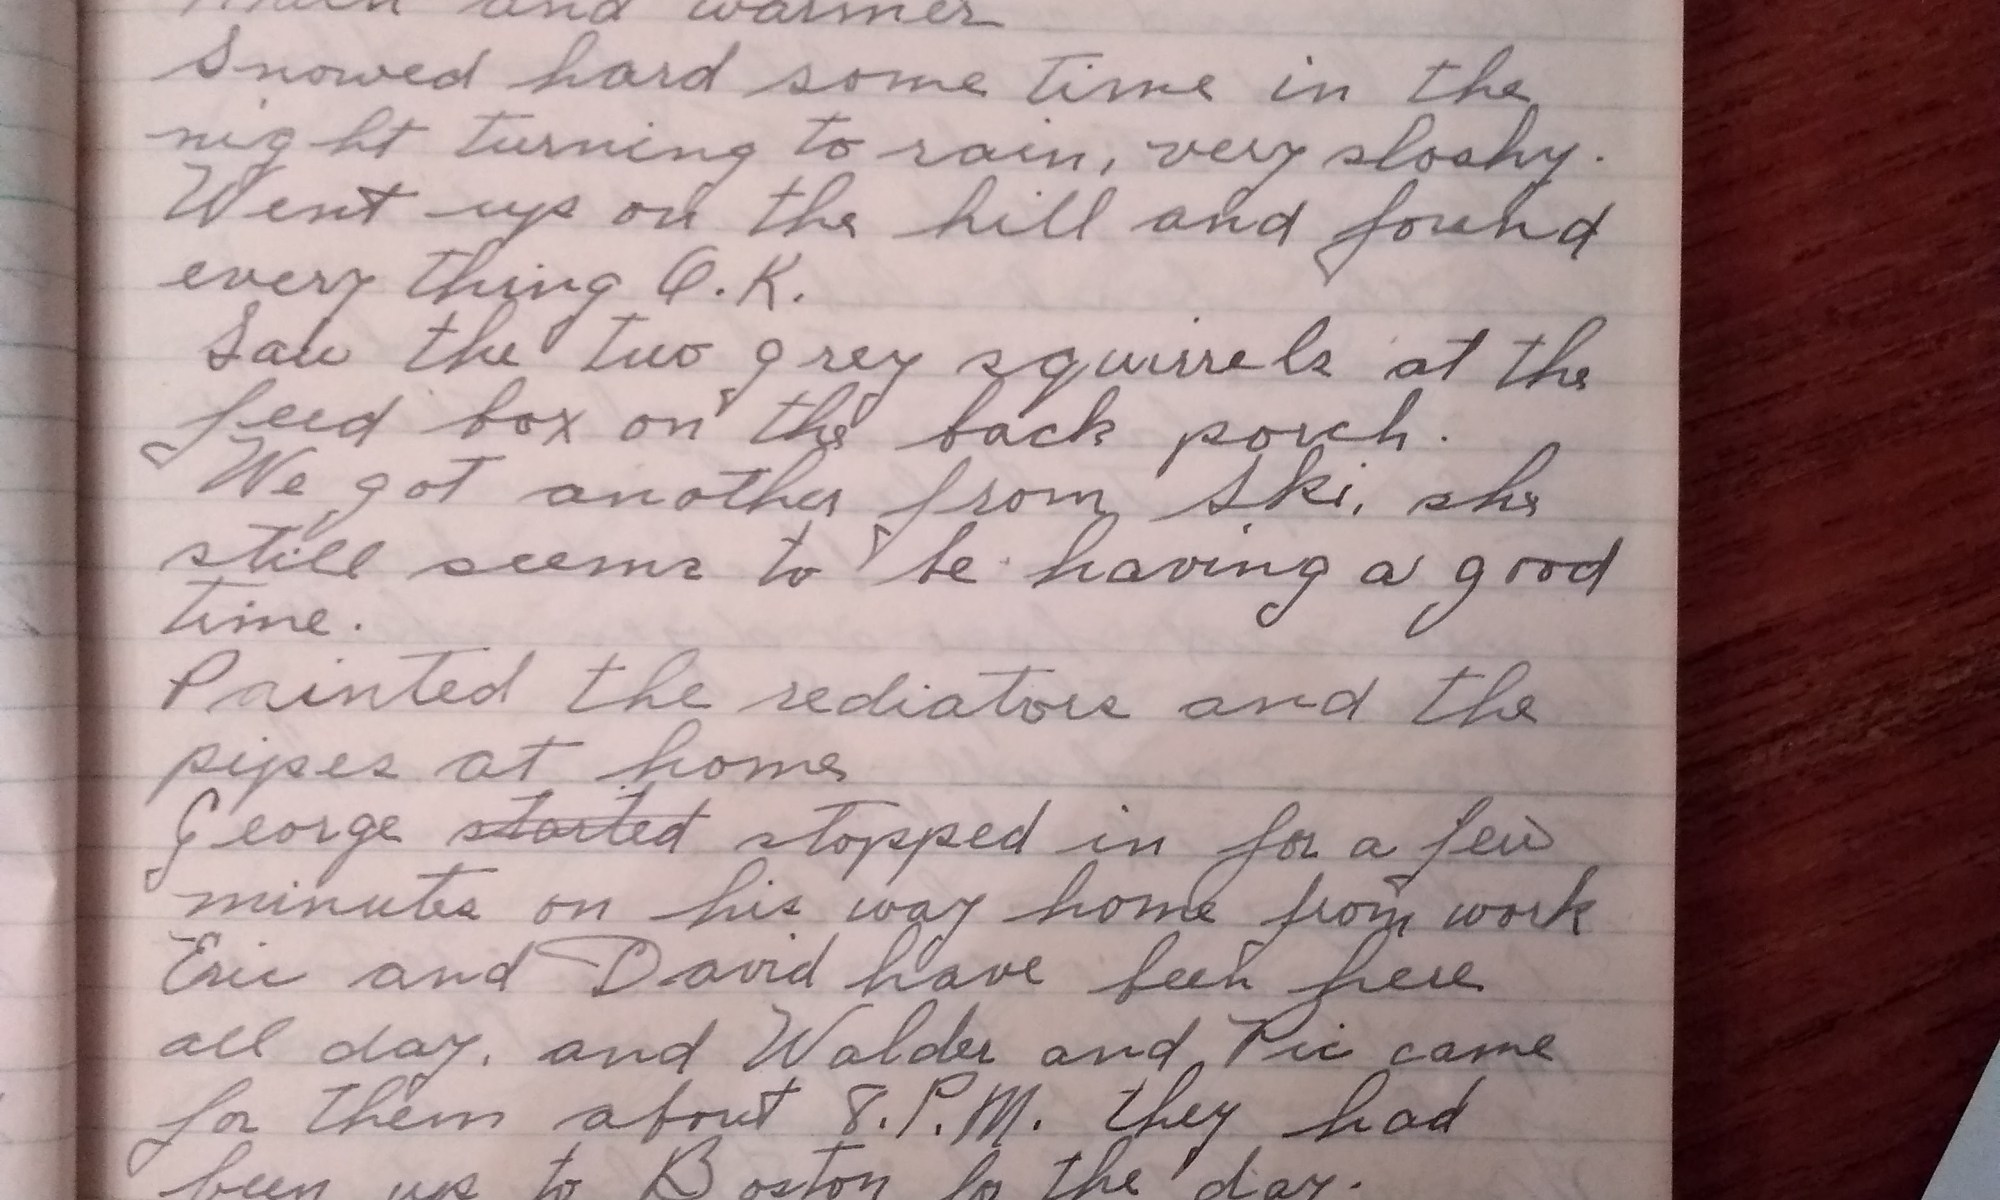 and warmer
Snowed hard some time in the
night turning to rain, very sloshy.
Went up on the hill and found
every thing O.K.
Saw the two grey squirrels at the
feed box on the back porch.
We got another from Ski, she
still seems to be having a good
time.
Painted the rediators and the
pipes at home
George started stopped in for a few
minutes on his way home from work
Eric and David have been here
all day. and Walder and Pic came
for them about 8.P.M. they had
been up to Boston for the day.